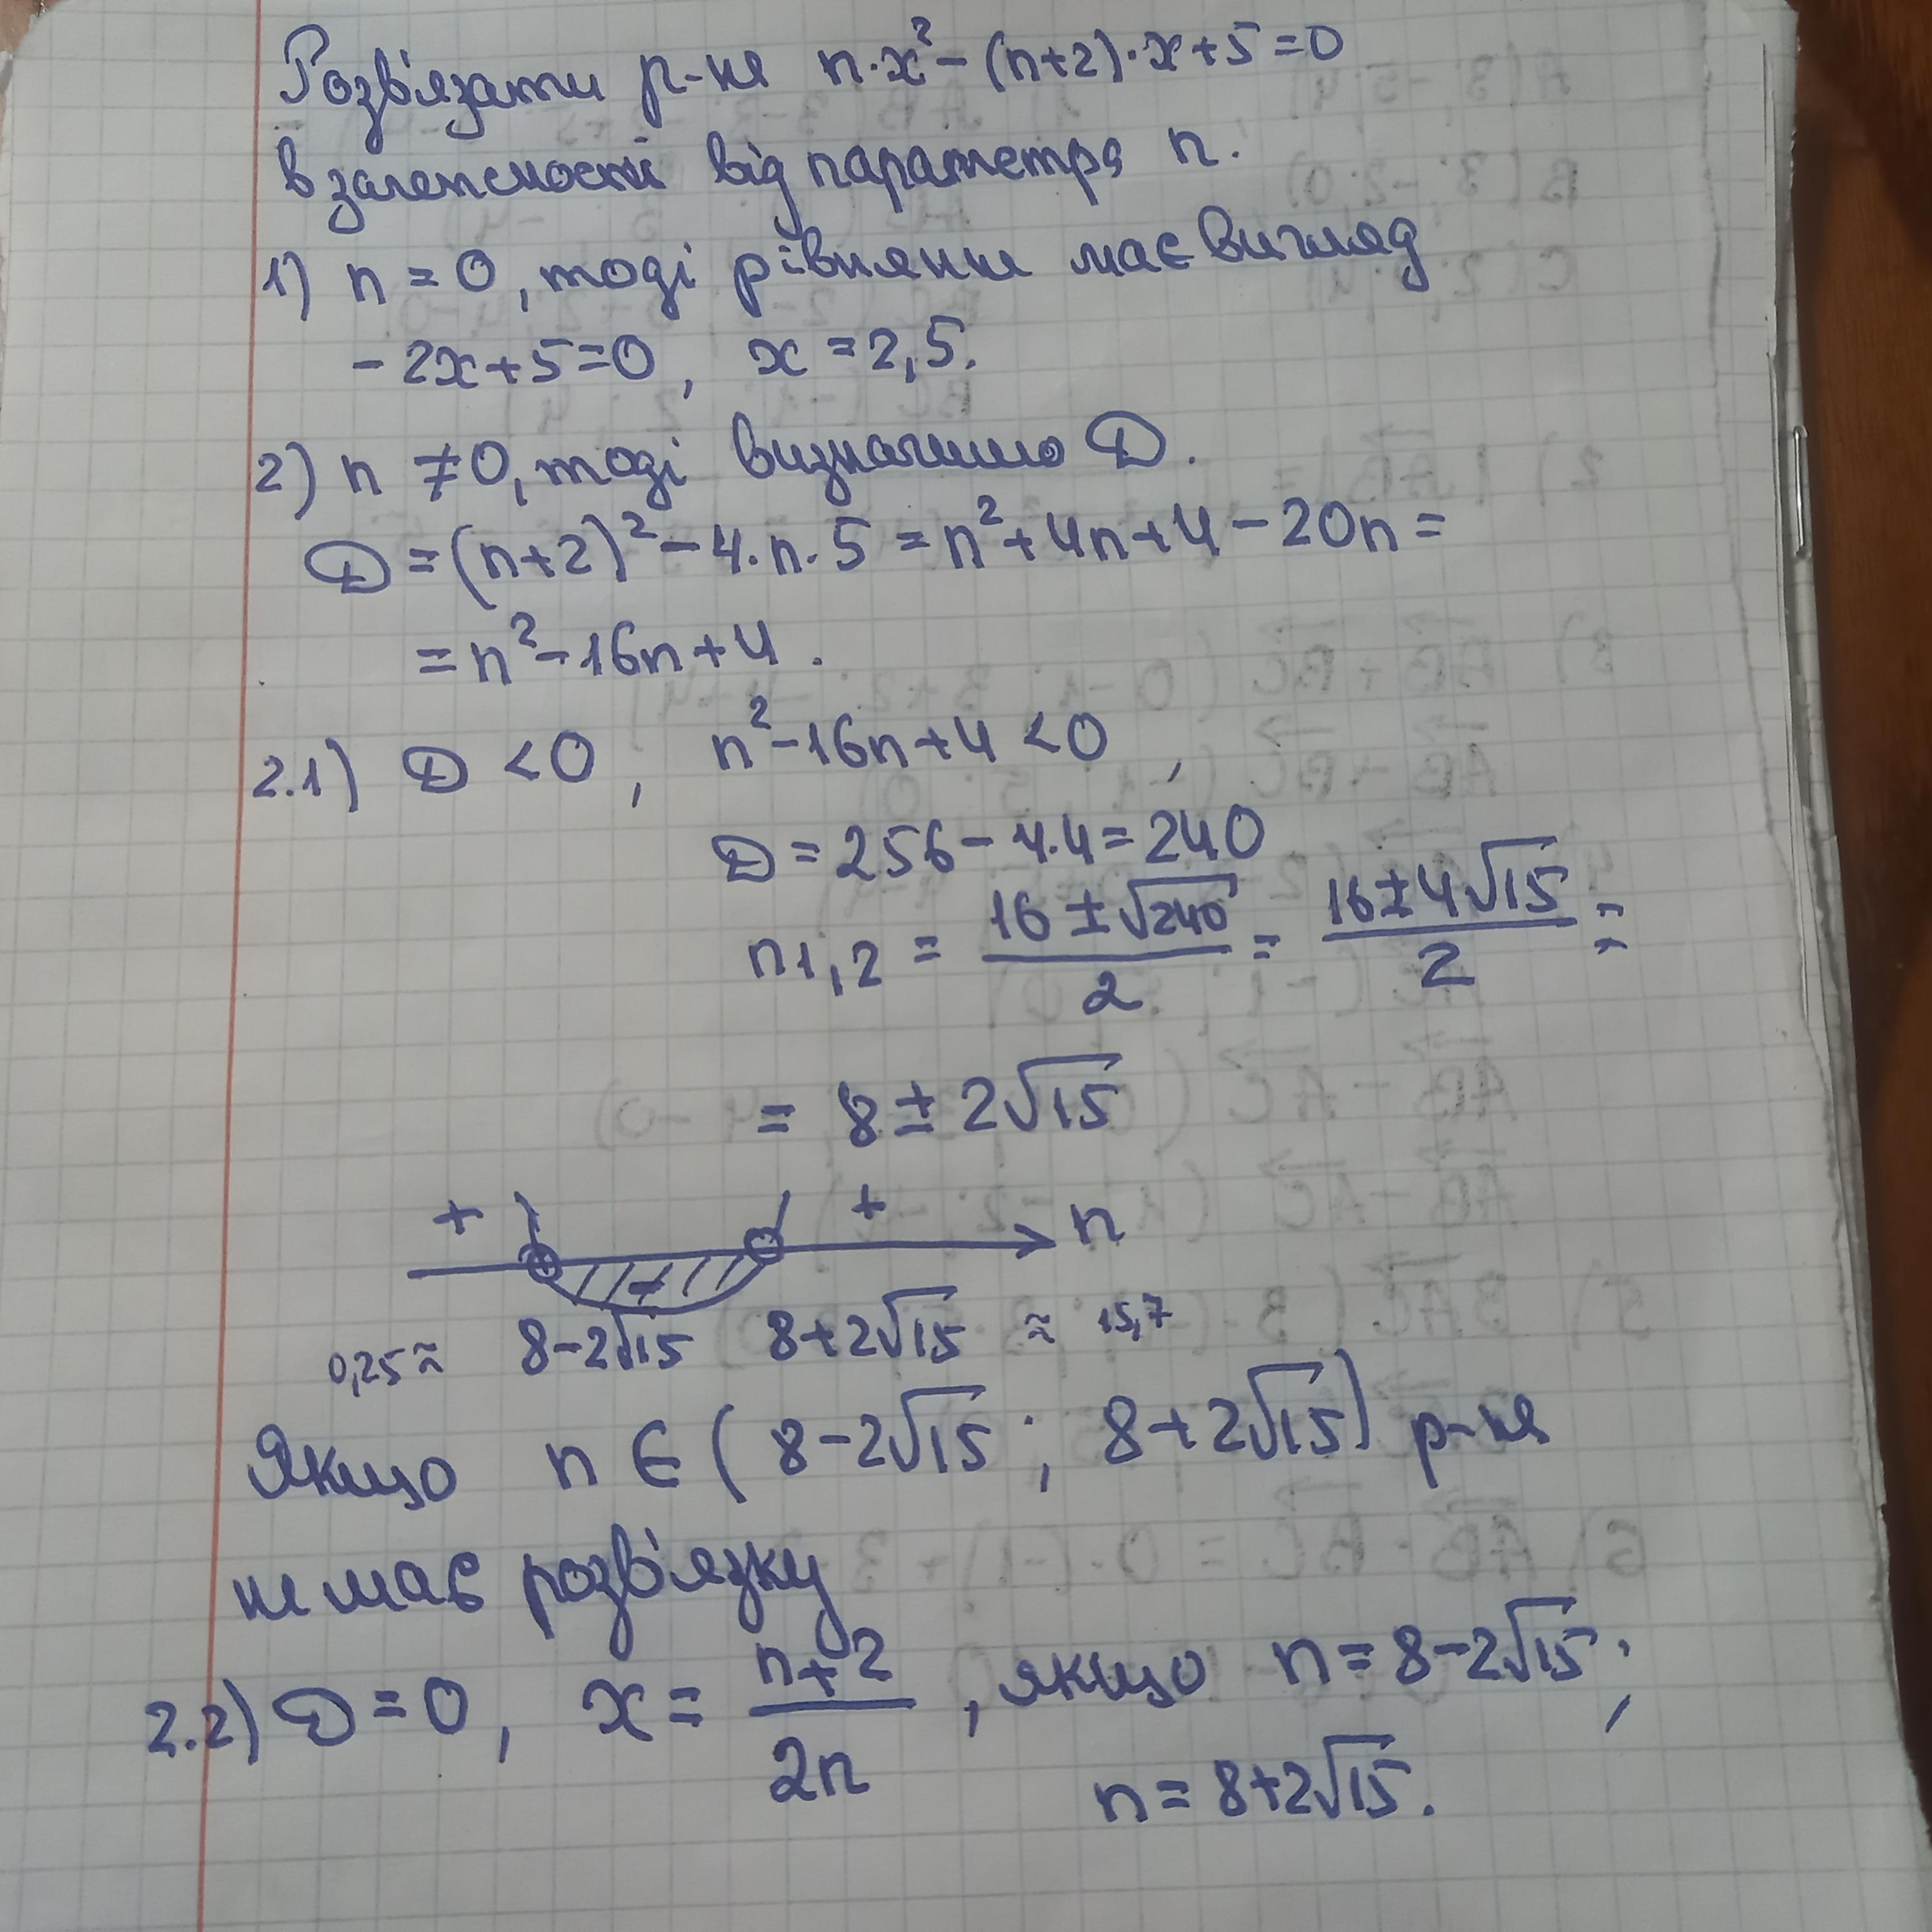 Розв'язати р-ня n·x² - (n+2)·x+5=0
в залежності від параметра n.
1) n = 0, тоді рівняння має вигляд
-2x+5=0, x = 2,5.
2) n ≠ 0, тоді визначимо D.
D = (n+2)² - 4·n·5 = n²+4n+4-20n =
= n²-16n+4.
2.1) D < 0, n²-16n+4 < 0,
D = 256 - 4·4 = 240
n1,2 = (16 ± √240)/2 = (16 ± 4√15)/2 =
= 8 ± 2√15
+ - + n
0,25 ≈ 8-2√15 8+2√15 ≈ 15,7
Якщо n ∈ (8-2√15; 8+2√15) р-ня
не має розв'язку
2.2) D = 0, x = (n+2)/(2n), якщо n = 8-2√15;
n = 8+2√15.